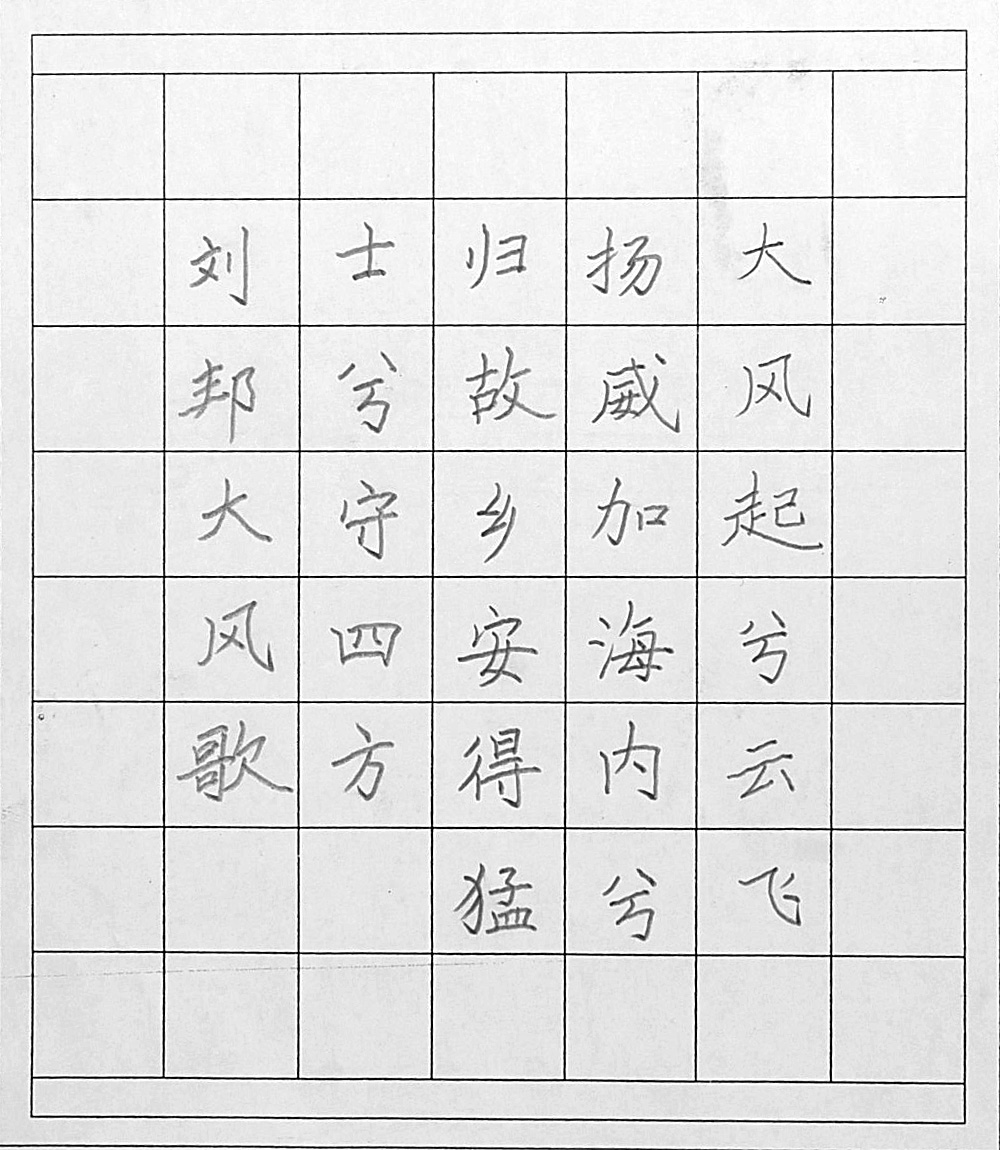 大风起兮云飞
扬威加海内兮
归故乡安得猛
士兮守四方
刘邦大风歌